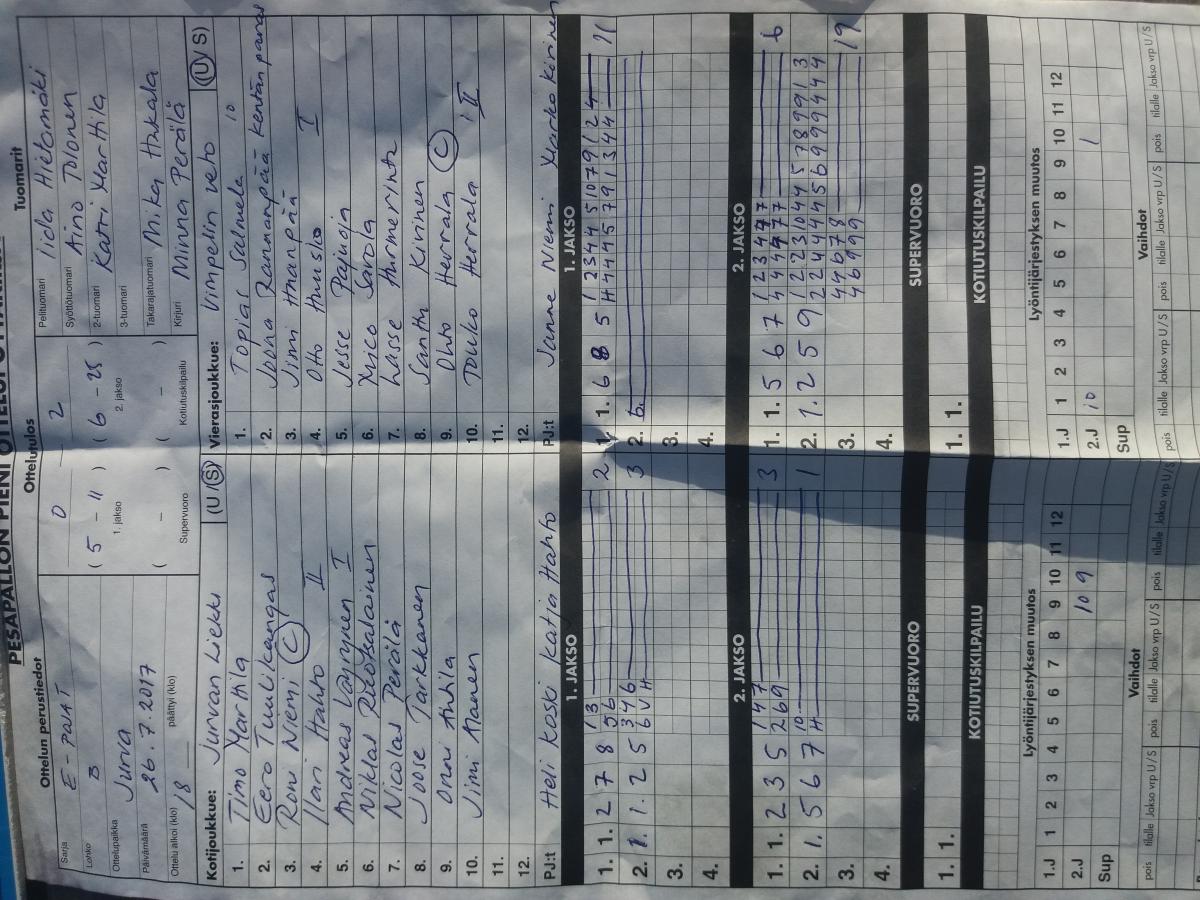 PESÄPALLON PIENI OTTELUPÖYTÄKIRJA
Ottelun perustiedot
Sarja E-POJAT
Lohko B
Ottelupaikka Jurva
Päivämäärä 26.7.2017
Ottelu alkoi (klo) 18 päättyi (klo)
Ottelutulos
0 2
( 5 – 11 ) ( 6 – 25 )
1. jakso 2. jakso
( – ) ( – )
Supervuoro Kotiutuskilpailu
Tuomarit
Pelituomari Iida Hietamäki
Syöttötuomari Aino Tolonen
2-tuomari Katri Marttila
3-tuomari
Takarajatuomari Miika Hakala
Kirjuri Minna Perälä
Kotijoukkue: Jurvan Liekki (U / S)
1. Timo Marttila
2. Eero Tuulikangas
3. Roni Niemi C
4. Ilari Hahto II
5. Andreas I
6. Niklas
7. Nicolas Perälä
8. Joose Tarkkanen
9. Onni Anttila
10. Jimi
11.
12.
PJ:t Heli Koski Katja Hahto
Vierasjoukkue: Vimpelin Veto (U / S)
1. Topias Salmela 10
2. Joona Rannanpää kentän paras
3. Jimi Hananpää
4. Otto I
5. Jesse Pajuoja
6. Nico Sarola
7. Lasse Hurmerinta
8. Santtu Kirinen
9. Otto Herrala C
10. Touko Herrala II
11.
12.
PJ:t Janne Niemi Marko Kirinen
1. JAKSO
1. 1. 2 7 8 1 3 2
5 6
2. 1. 1. 2 5 3 4 6 3
6 V H
3.
4.
1. JAKSO
1. 1. 6 8 5 1 2 3 4 4 5 10 7 9 1 2 4 11
H 4 4 4 5 7 9 1 3 4 4
2. 6.
3.
4.
2. JAKSO
1. 1. 2 3 5 1 4 7 3
2 6 9
2. 1. 5 6 7 10 1
H
3.
4.
2. JAKSO
1. 1. 5 6 7 1 2 3 4 7 7 6
4 4 4 4 7 7
2. 1. 2 5 9 1 2 2 3 10 4 4 5 7 8 9 9 1 3
2 2 4 4 4 5 6 9 9 9 4 4 4
3. 4 4 6 7 8 19
4 6 9 9 9
4.
SUPERVUORO
1. 1.
SUPERVUORO
1. 1.
KOTIUTUSKILPAILU
KOTIUTUSKILPAILU
Lyöntijärjestyksen muutos
1 2 3 4 5 6 7 8 9 10 11 12
1.J
2.J 10 9
Sup
Lyöntijärjestyksen muutos
1 2 3 4 5 6 7 8 9 10 11 12
1.J
2.J 10 1
Sup
Vaihdot
pois tilalle Jakso vrp U/S pois tilalle Jakso vrp U/S pois tilalle Jakso vrp U/S
Vaihdot
pois tilalle Jakso vrp U/S pois tilalle Jakso vrp U/S pois tilalle Jakso vrp U/S